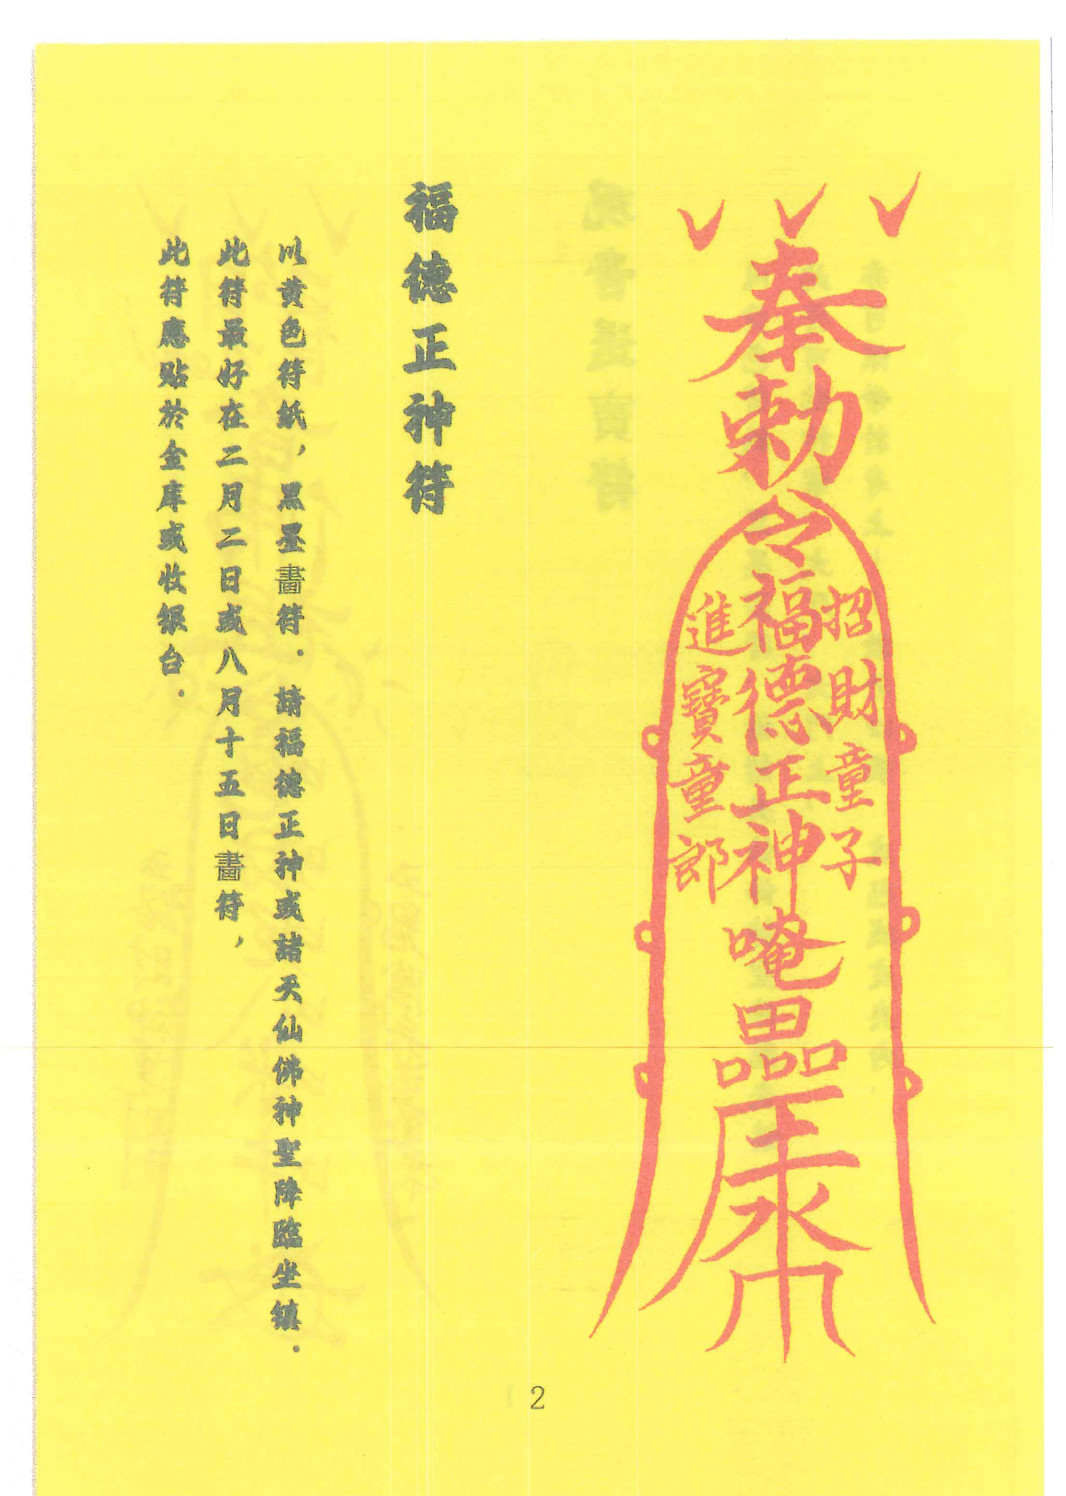 奉
勅
令
福德正神
招財童子
進寶童郎
唵
福德正神符
以黄色符紙，黑墨畵符．請福德正神或諸天仙佛神聖降臨坐镇．
此符最好在二月二日或八月十五日畵符，
此符應貼於金库或收銀台．
2